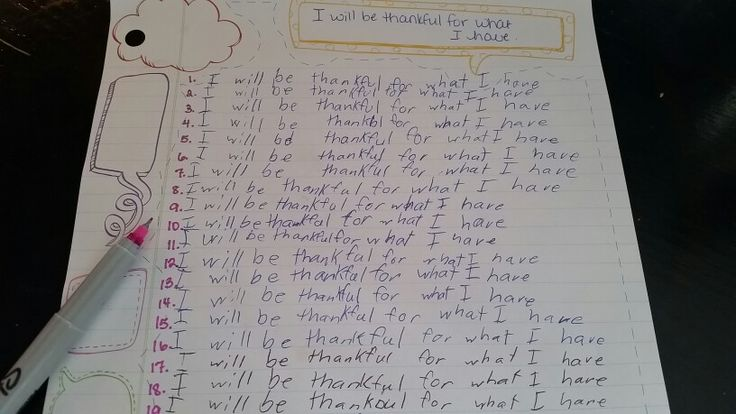 I will be thankful for what
I have.
1. I will be thankful for what I have
2. I will be thankful for what I have
3. I will be thankful for what I have
4. I will be thankbl for what I have
5. I will be thankful for what I have
6. I will be thankful for what I have
7. I will be thankful for what I have
8. I will be thankful for what I have
9. I will be thankful for what I have
10. I will be thankful for what I have
11. I will be thankful for what I have
12. I will be thankful for what I have
13. will be thankful for what I have
14. I will be thankful for what I have
15. I will be thankful for what I have
16. I will be thankful for what I have
17. I will be thankful for what I have
18. I will be thankful for what I have
19. I will be thankoul for what I have